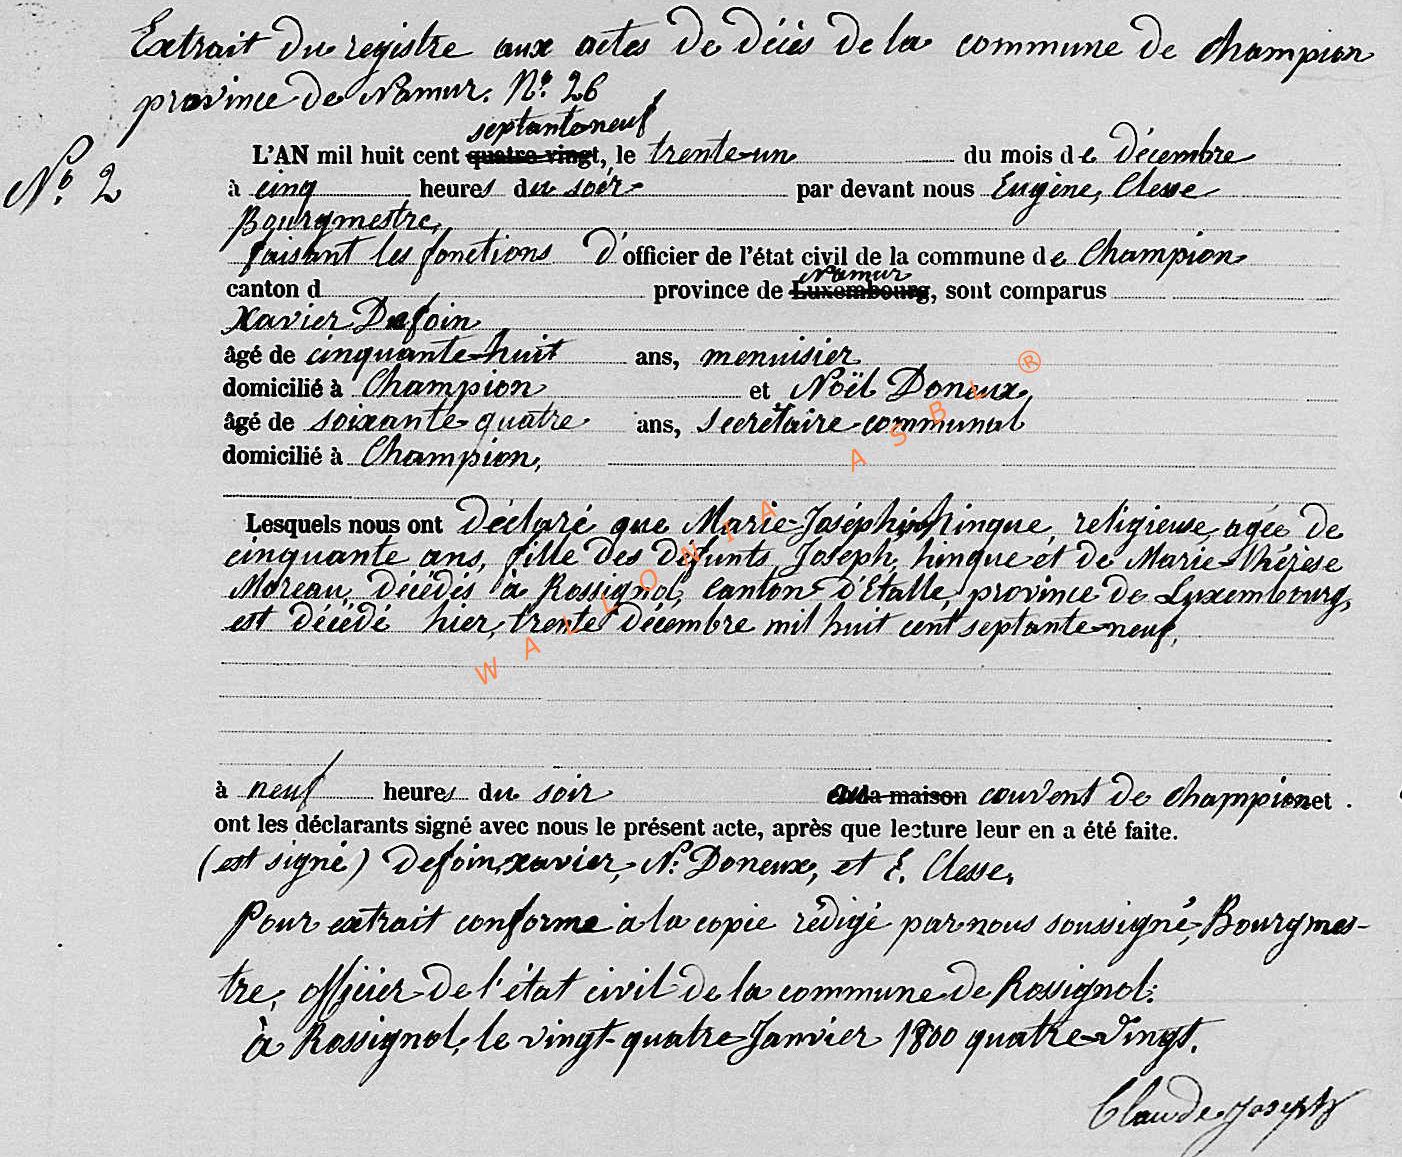 Extrait du registre aux actes de décès de la commune de Champion
province de Namur. N° 26
septante neuf
N° 2
L'AN mil huit cent quatre-vingt, le trente-un du mois de décembre
à cinq heures du soir par devant nous Eugène, Clesse
Bourgmestre,
faisant les fonctions d'officier de l'état civil de la commune de Champion
Namur
canton d province de Luxembourg, sont comparus
Xavier Defoin
âgé de cinquante-huit ans, menuisier
domicilié à Champion et Noël Doneux,
âgé de soixante-quatre ans, secrétaire communal
domicilié à Champion,
Lesquels nous ont déclaré que Marie-Joséphine hinque, religieuse, agée de
cinquante ans, fille des défunts, Joseph, hinque et de Marie-thérèse
Moreau, décédés à Rossignol, Canton d'Etalle, province de Luxembourg,
est décédé hier, trente décembre mil huit cent septante-neuf,
à neuf heures du soir au couvent de champion et
ont les déclarants signé avec nous le présent acte, après que lecture leur en a été faite.
(est signé) Defoin, xavier, N. Doneux, et E. Clesse,
Pour extrait conforme à la copie rédigé par nous soussigné, Bourgmes-
tre, officier de l'état civil de la commune de Rossignol:
à Rossignol, le vingt-quatre Janvier 1800 quatre-Vingt.
Claude Joseph
WALLONIA ASBL ®